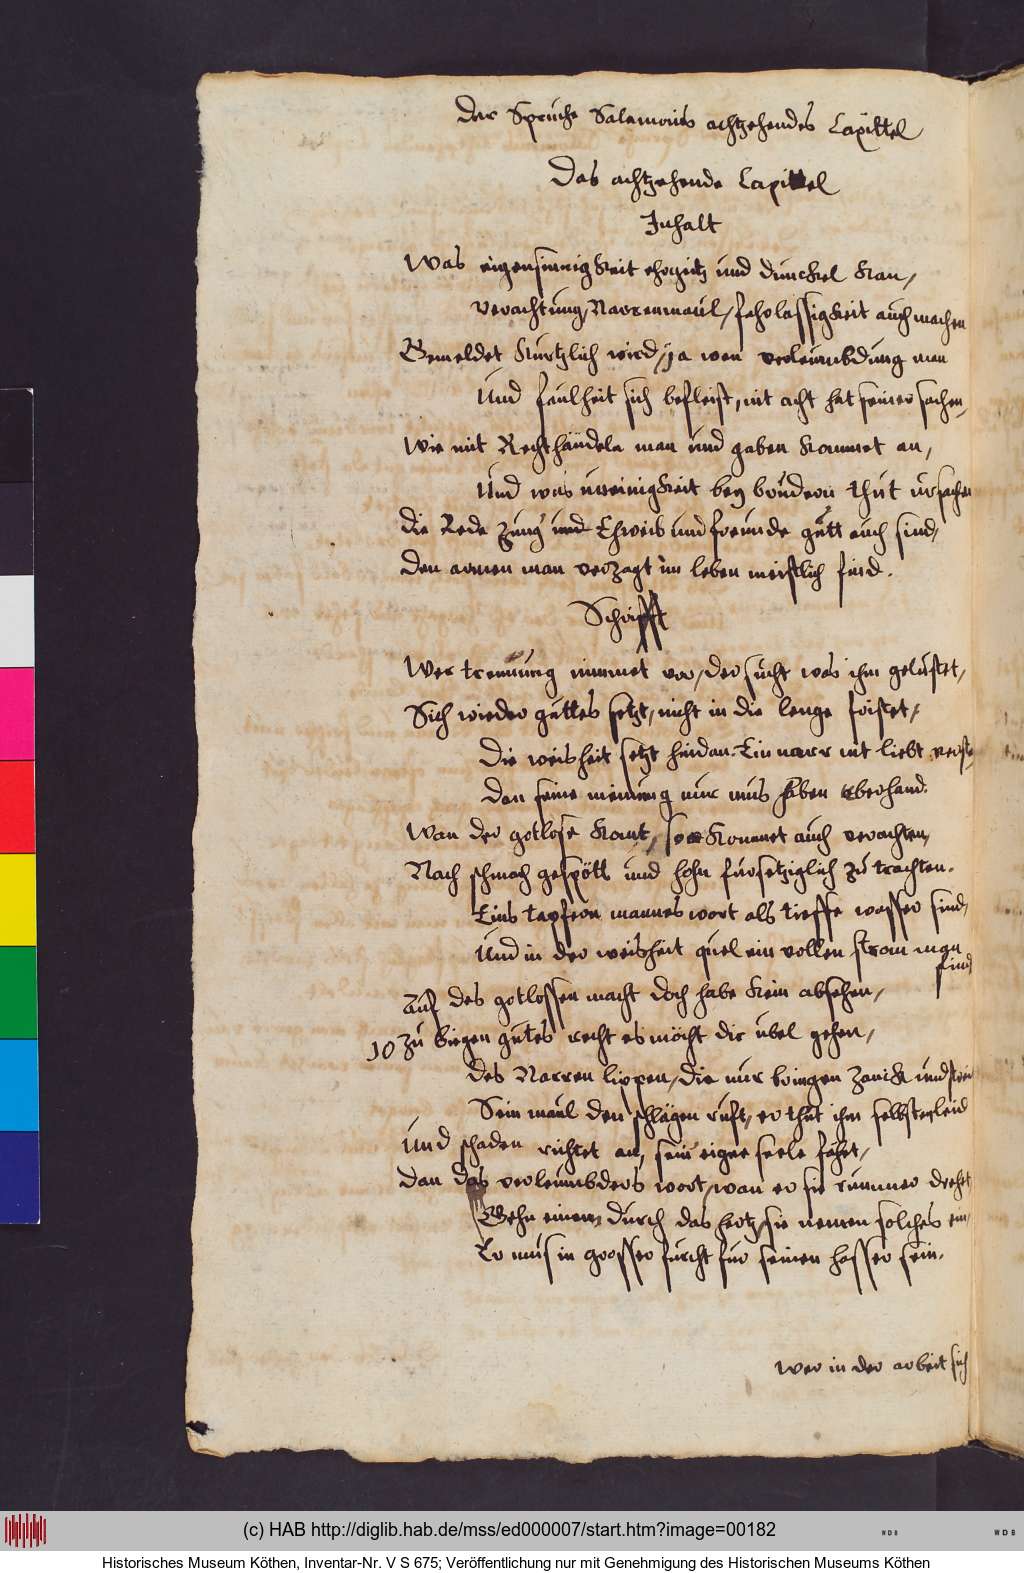 Der Sprüche Salamonis achtzehendes Capittel
Das achtzehende Capittel
Inhalt
Was eigensinnigkeit ehrgeitz und dunckel kan,
verachtung, Narrenmaul, fahrlassigkeit auch machen
Gemeldet kurtzlich wird, ja wen verleumbdung man
Und faulheit sich befleist, nit acht hat seiner sachen,
Wie mit Rechthändeln man und gaben kommet an,
Und was uneinigkeit bey brüdern thut ursachen
die Rede zung und Ehweib und freunde gutt auch sind,
Den armen man verzagt im leben meistlich find.
Schrifft
Wer trennung nimmet vor, der sucht was ihm gelüstet,
Sich wieder guttes setzt, nicht in die lenge fristet,
Die weisheit setzt hindan. Ein narr nit liebt
Dan seine meinung nur mus haben uberhand.
Wan der gotlose komt, so kommet auch verachten,
Nach schmach gespött und hohn fursetziglich zu trachten.
Eins tapfern mannes wort als tieffe wasser sind,
Und in der weisheit quel ein vollen strom man
find
Auf des gotlossen macht doch habe kein absehen,
10 zu biegen gutes recht es möcht dir ubel gehen,
Des Narren lippen, die nur bringen zanck und streit
Sein maul den schlägen ruft, er thut ihm selbsten leid
Und schaden richtet an, sein eigne seele fähet,
Dan das verleumbders wort, wan er sie rummer drehet
Gehn einem durch das hertz, sie nemen solches ein,
Er mus in grosser furcht fur seinen hasser sein.
Wer in der arbeit sich
(c) HAB http://diglib.hab.de/mss/ed000007/start.htm?image=00182
WDB
WDB
Historisches Museum Köthen, Inventar-Nr. V S 675; Veröffentlichung nur mit Genehmigung des Historischen Museums Köthen